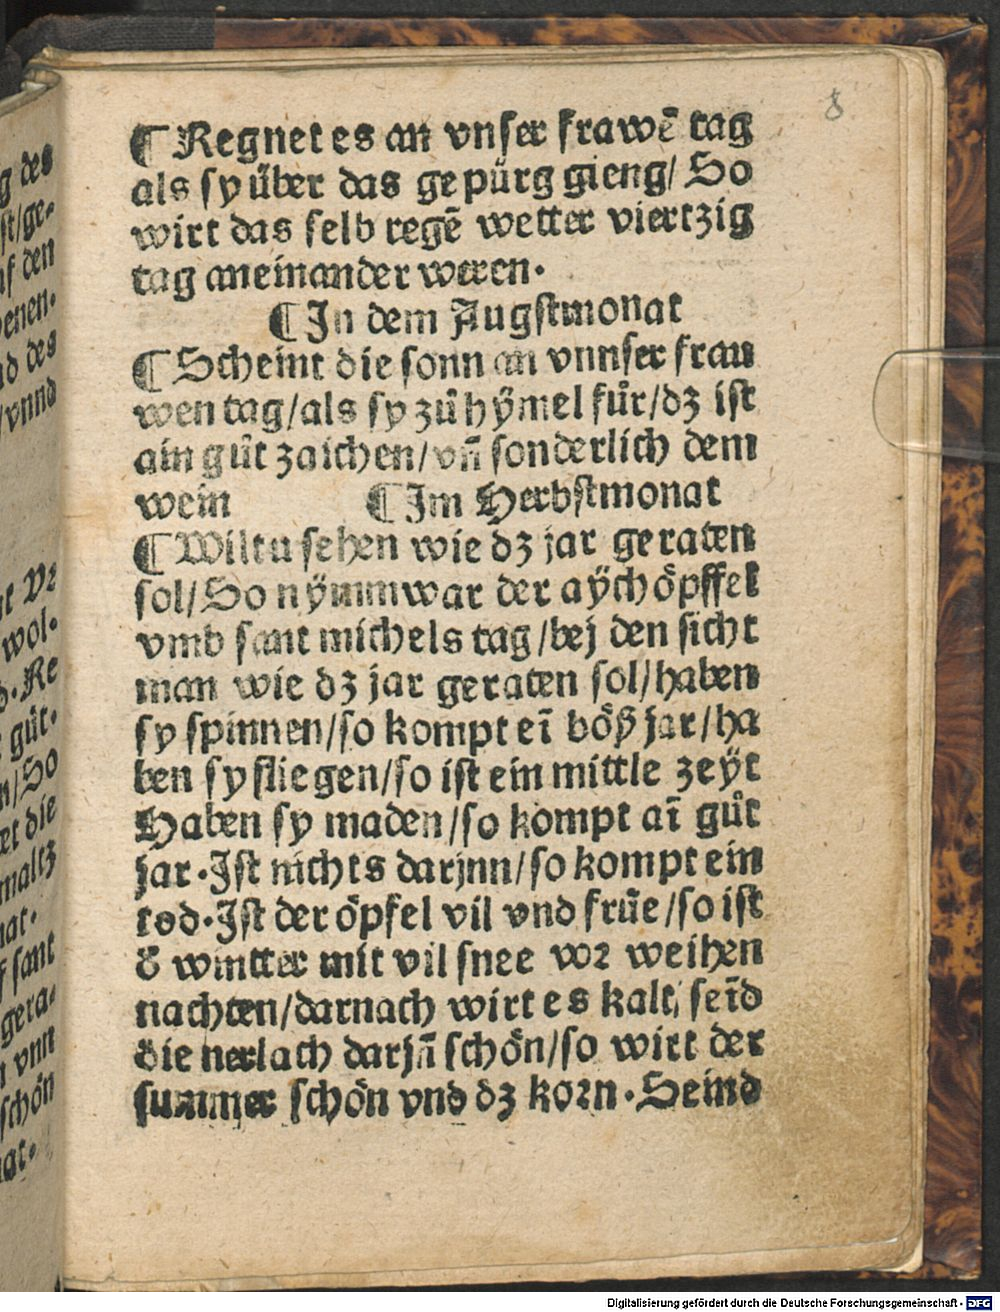 8
¶ Regnet es an vnser frawē tag
als sy über das gepürg gieng/ So
wirt das selb regē wetter viertzig
tag aneinander weren.
¶ In dem Augstmonat
¶ Scheint die sonn an vnnser frau
wen tag/als sy zů hÿmel für/dz ist
ain gůt zaichen/vn̄ sonderlich dem
wein ¶ Im Herbstmonat
¶ Wiltu sehen wie dz jar geraten
sol/So nÿmm war der aÿchöpffel
vmb sant michels tag/bej den sicht
man wie dz jar geraten sol/haben
sy spinnen/so kompt eī böß jar/ha
ben sy fliegen/so ist ein mittle zeÿt
Haben sy maden/so kompt aī gůt
jar. Ist nichts darjnn/so kompt ein
tod. Ist der öpfel vil vnd frůe/so ist
d̕ wintter mit vil snee vor weihen
nachten/darnach wirt es kalt/ seīd
die nerlach darjn̄ schön/so wirt der
summer schön vnd dz korn. Seind
g des
st/ge-
uf den
enen.
nd des
/vnnd
wol-
Re
gůt.
n/So
et die
maltz
nat.
f sant
gera-
vnn
schön
nat.
Digitalisierung gefördert durch die Deutsche Forschungsgemeinschaft - DFG